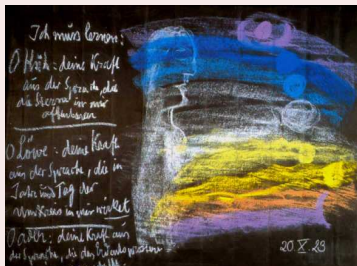 Ich muss lernen:
O Kuh: deine Kraft
aus der Sprache, die
die Sterne in mir
offenbaren
O Löwe: deine Kraft
aus der Sprache, die in
Jahr und Tag der
Umkreis in mir wirket
O Adler: deine Kraft aus
der Sprache, die das
20 X. 23